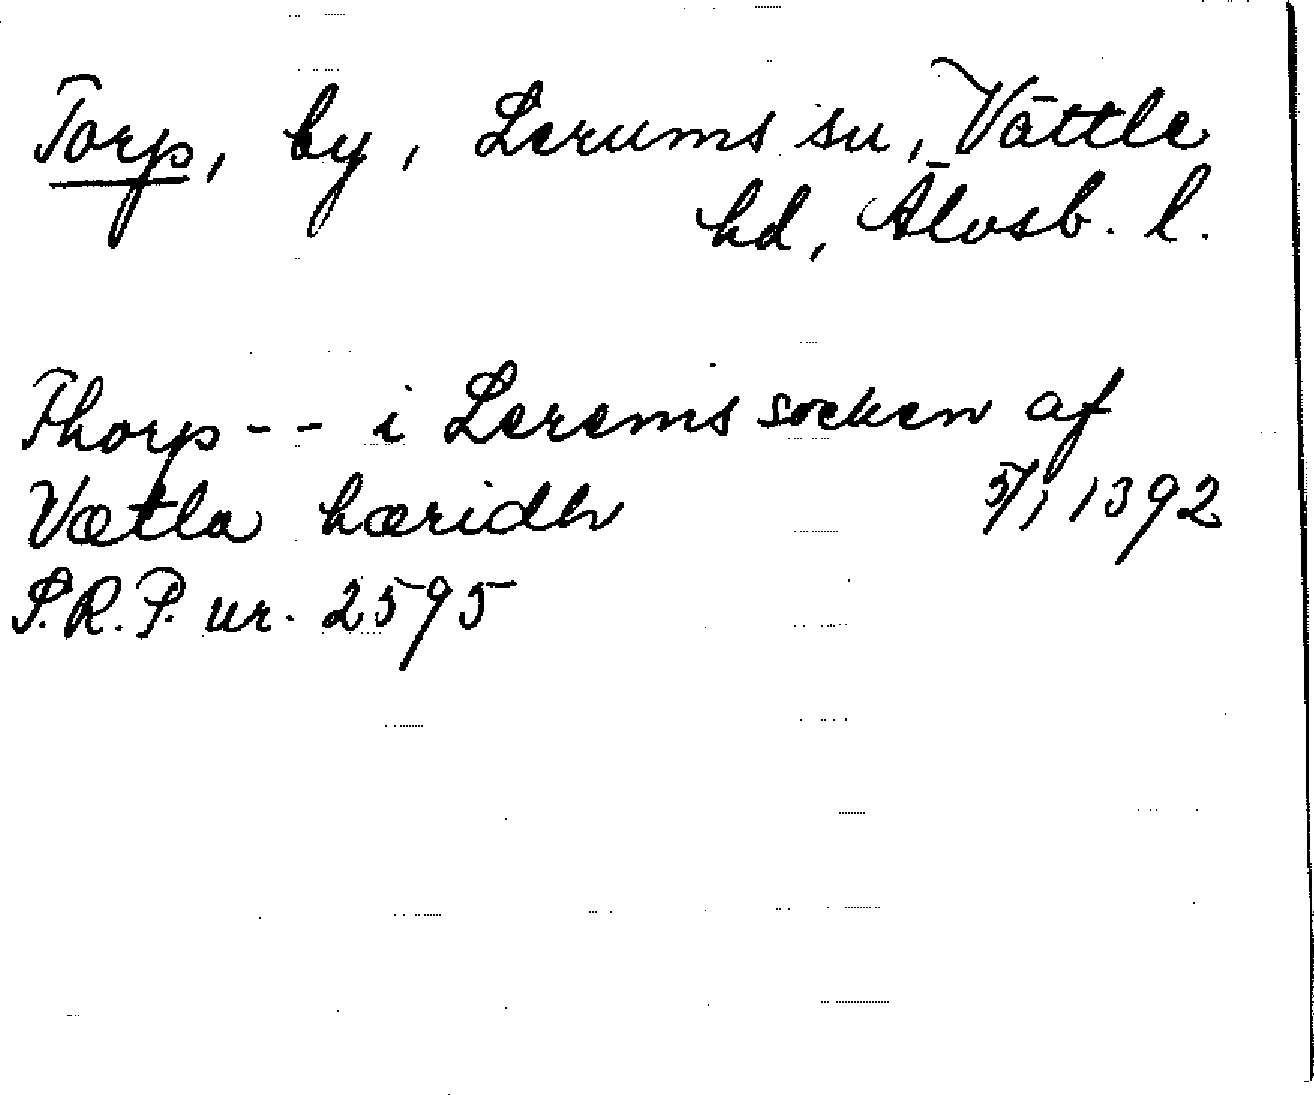 Torp, by, Lerums sn, Vättle
hd, Älvsb. l.
Thorp -- i Lerems socken af
Vætla hæridh 5/1 1392
S.R.P. nr. 2595